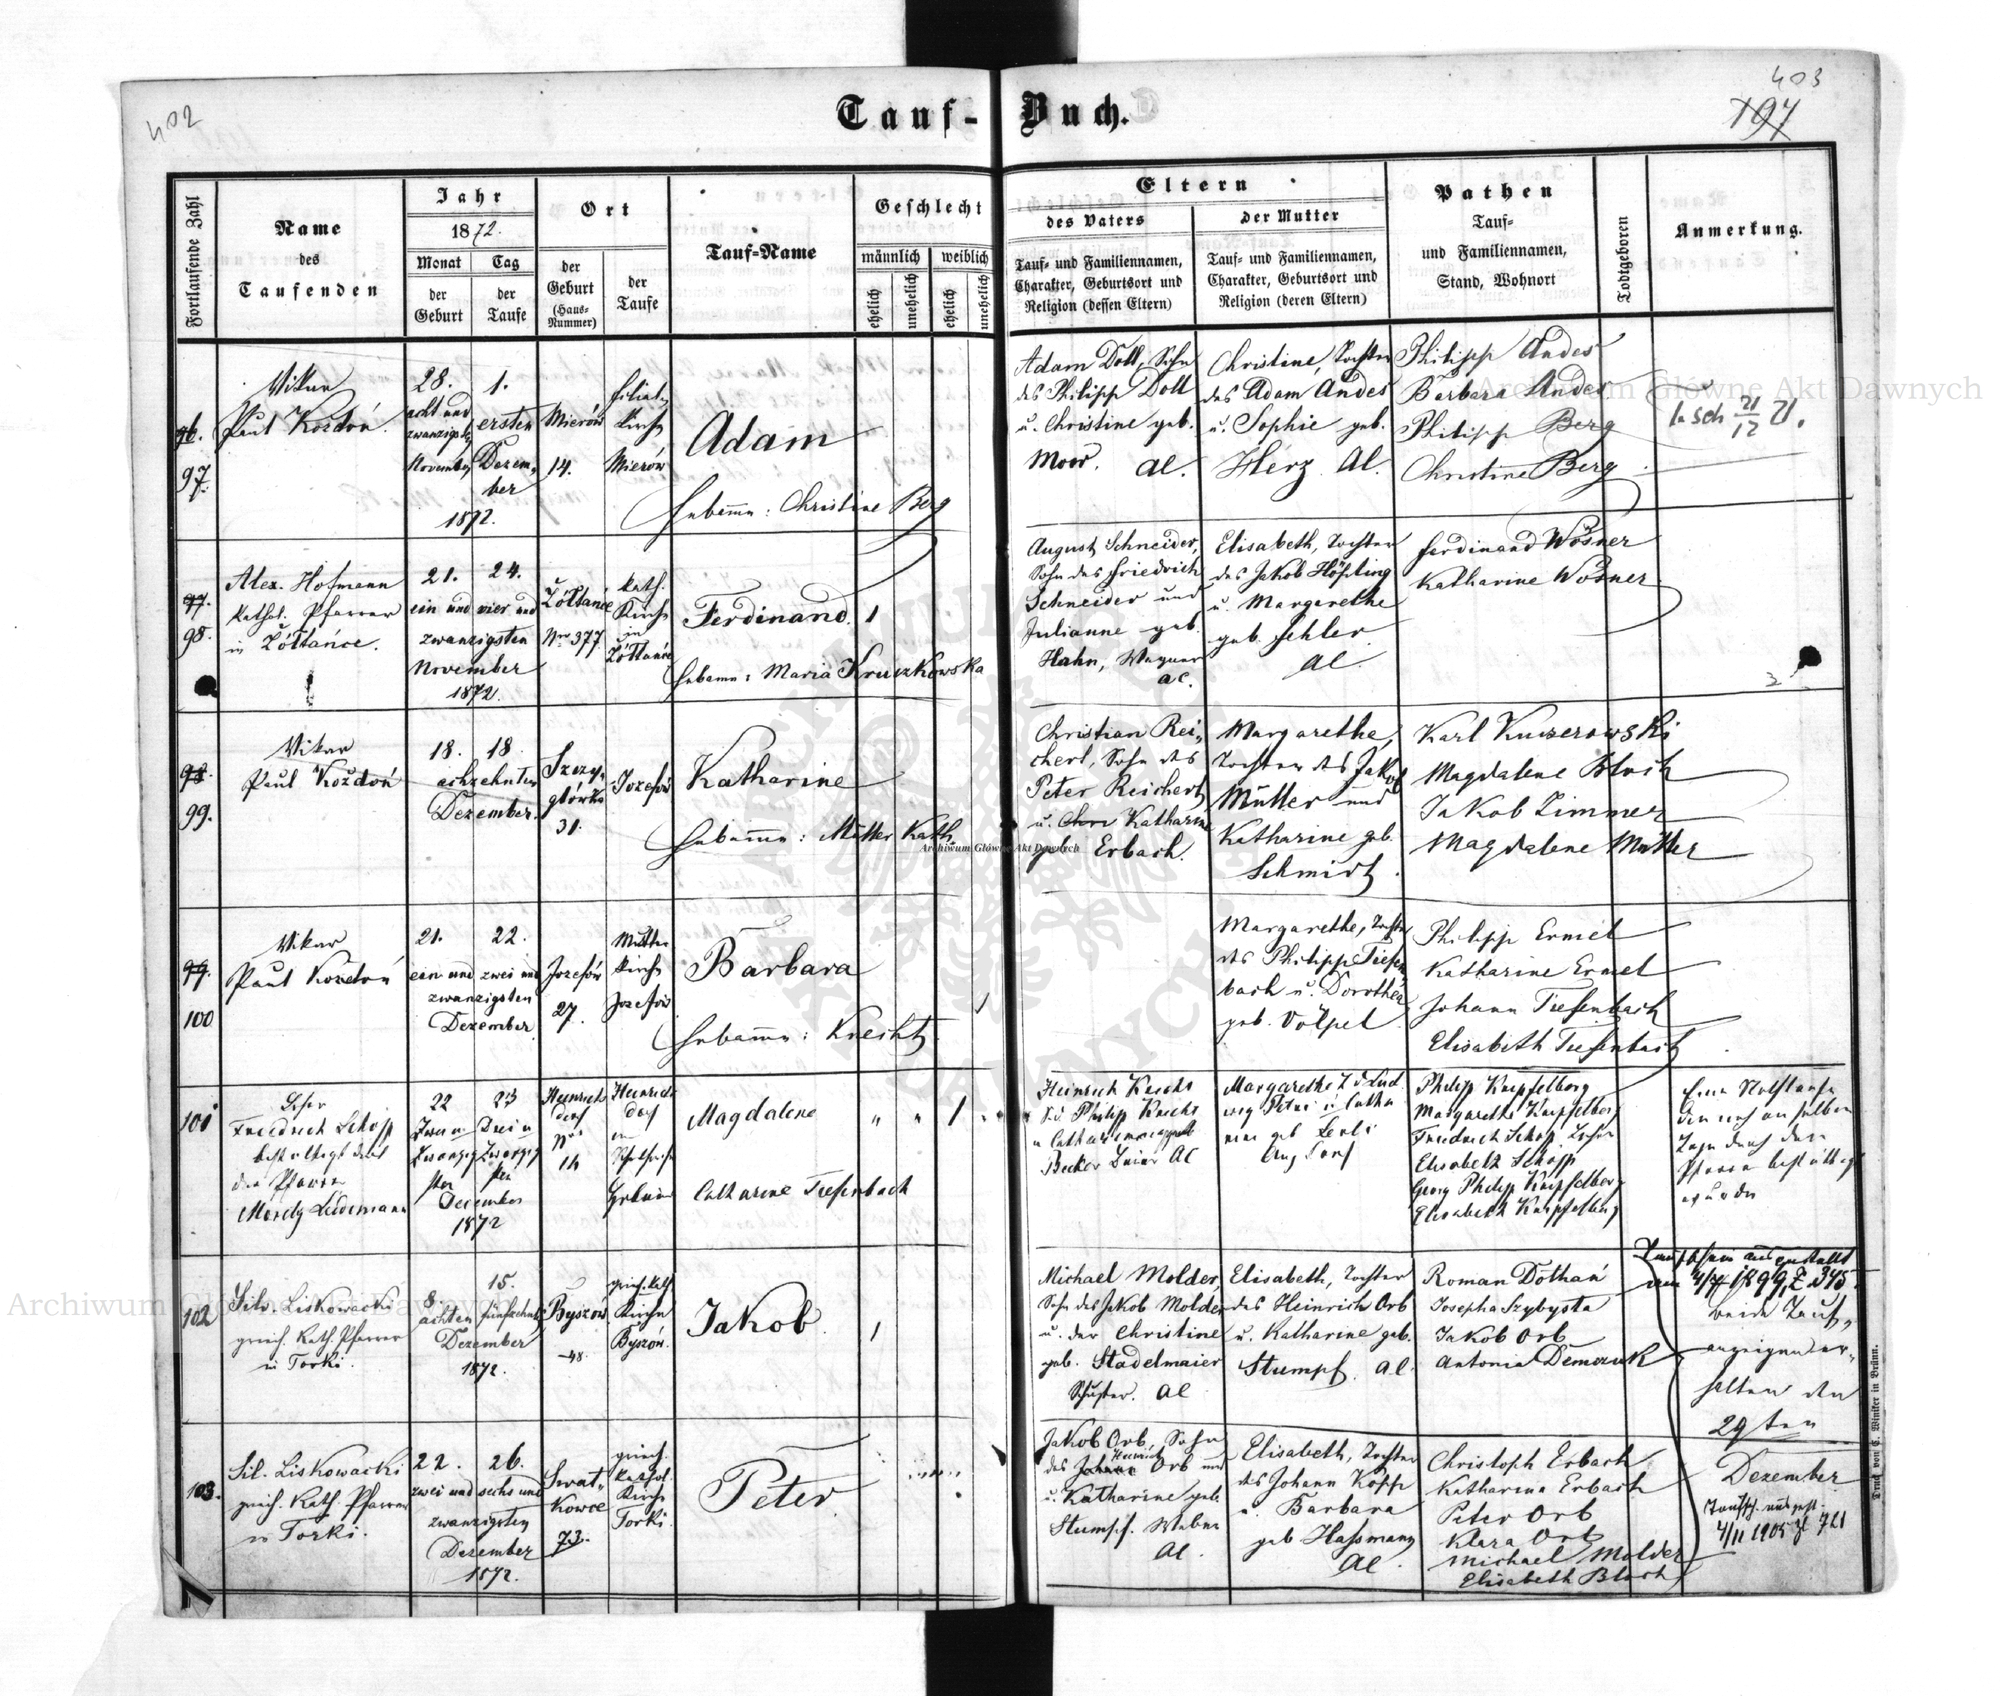 402
403
197
Tauf-Buch.
Fortlaufende Zahl
Name
des
Taufenden
Jahr
1872.
Monat
Tag
der
Geburt
der
Taufe
Ort
der
Geburt
(Haus-
Nummer)
der
Taufe
Tauf-Name
Geschlecht
männlich
weiblich
ehelich
unehelich
ehelich
unehelich
Eltern
des Vaters
Tauf- und Familiennamen,
Charakter, Geburtsort und
Religion (dessen Eltern)
der Mutter
Tauf- und Familiennamen,
Charakter, Geburtsort und
Religion (deren Eltern)
Pathen
Tauf-
und Familiennamen,
Stand, Wohnort
Todtgeboren
Anmerkung.
96.
97.
Vikar
Paul Kozdoń.
28.
acht und
zwanzigsten
November
1.
ersten
Dezem-
ber
1872.
Mierów
14.
Filial-
Kirche
Mierów
Adam
Hebamme: Christine Berg
Adam Doll, Sohn
des Philipp Doll
u. Christine geb.
Moor. AC.
Christine, Tochter
des Adam Andes
u. Sophie geb.
Herz AC.
Philipp Andes
Barbara Andes
Philipp Berg
Christine Berg
97.
98.
Alex. Hofmann
kathol. Pfarrer
in Żółtańce.
21.
24.
ein und
vier und
zwanzigsten
November
1872.
Żółtańce
Nro 377
kath.
Kirche
in
Żółtańce
Ferdinand.
1
Hebamme: Maria Kruczkowska
August Schneider,
Sohn des Friedrich
Schneider und
Julianne geb.
Hahn, Wagner
AC.
Elisabeth, Tochter
des Jakob Höfling
u. Margarethe
geb. Fehler
AC.
Ferdinand Wösner
Katharine Wösner
98.
99.
Vikar
Paul Kożdoń
18.
18.
achzehnten
Dezember.
Szczy-
główka
31.
Jozefów
Katharine
Hebamme: Müller Kath.
Christian Rei-
chert, Sohn des
Peter Reichert
u. Chri Katharine
geb. Erbach.
Margarethe,
Tochter des Jakob
Müller und
Katharine geb.
Schmidt.
Karl Kuczerowski
Magdalene Bloch
Jakob Zimmer
Magdalene Müller
99.
100
Vikar
Paul Kozdoń
21.
22.
ein und
zwei und
zwanzigsten
Dezember.
Jozefów
27.
Mutter
Kirche
Jozefów
Barbara
Hebamme: Knecht.
Margarethe, Tochter
des Philipp Tiefen-
bach u. Dorothea
geb. Völpel
Philipp Ermel
Katharine Ermel
Johann Tiefenbach
Elisabeth Tiefenbach
101
Lehrer
Friedrich Schopp
bestättigt durch
den Pfarrer
22
23
Zwei u
Drei u
Zwanzig
Zwanzig
sten
sten
December
1872
Heinrichs
dorf
Nro
14
Heinrichs
dorf
im
Magdalene
" " 1
Catharine Tiefenbach
Heinrich Knecht
S. d. Philipp Knecht
Becker AC
Margaretha T. d. Lud
wig Petri u Catha
rine geb
Philipp Knipfelberg
Margaretha Knipfelberg
Friedrich Schopp Lehrer
Elisabeth Schopp
Georg Philipp Knipfelberg
Elisabeth Knipfelberg
102
Silv. Liskowacki
griech. Kath. Pfarrer
in Torki.
8.
15.
achten
fünfzehnten
Dezember
1872.
Byszow
48.
griech. Kath.
Kirche
Byszów.
Jakob.
1
Michael Molder,
Sohn des Jakob Molder
u. der Christine
geb. Stadelmaier
Schuster. AC
Elisabeth, Tochter
des Heinrich Orb
u. Katharine geb.
Stumpf. AC.
Roman Dothań
Josepha Szybysta
Jakob Orb
Antonia Demczuk
Taufschein ausgestellt
am 4/7 1899, Z. 345.
beide Tauf-
anzeigen er-
halten den
29ten
Dezember
103.
Sil. Liskowacki
griech. Kath. Pfarrer
in Torki.
22.
26.
zwei und
sechs und
zwanzigsten
Dezember
1872.
Swat-
kowce
73.
griech.
kathol.
Kirche
Torki.
Peter
Jakob Orb, Sohn
Heinrich
des Johann Orb und
u. Katharine geb.
Stumpf. Weber
AC.
Elisabeth, Tochter
des Johann Kopp
u. Barbara
geb. Hassmann
AC.
Christoph Erbach
Katharina Erbach
Peter Orb
Klara Orb
Michael Molder
Elisabeth Bloch
Taufsch. ausgest.
4/11 1905 Zl 721
Druck von C. Winiker in Brünn.
Archiwum Główne Akt Dawnych
Archiwum Główne Akt Dawnych
Archiwum Główne Akt Dawnych